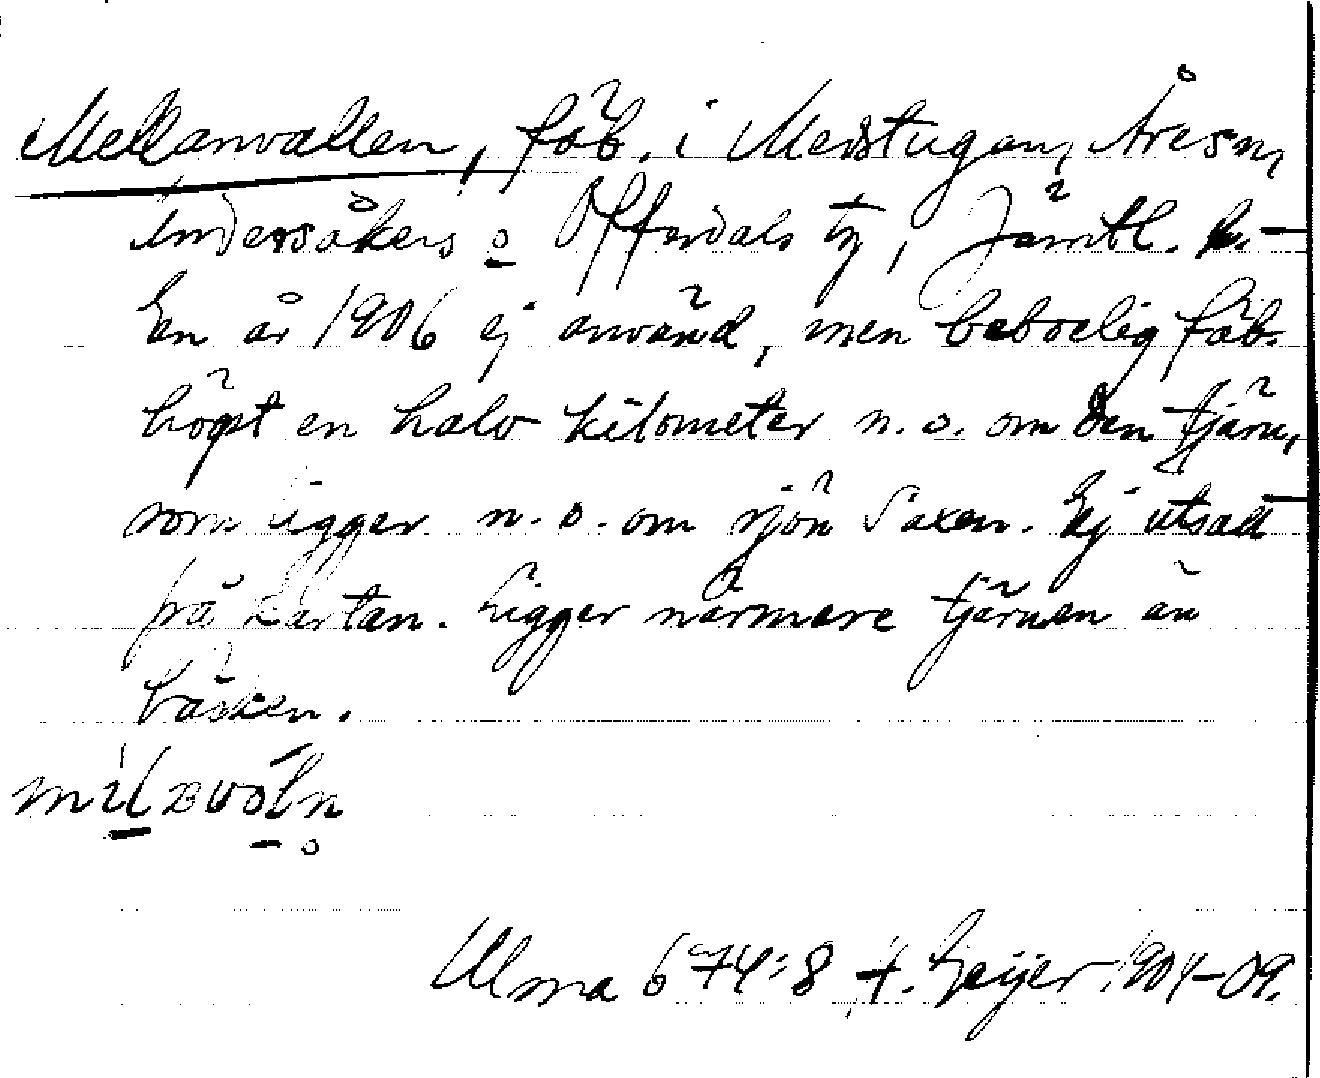 Mellanvallen, fäb. i Medstugan, Åre sn,
Undersåkers o Offerdals tg, Jämtl. l. –
En år 1906 ej använd, men beboelig fäb.
högst en halv kilometer n.o. om den tjärn,
som ligger n.o. om sjön Saxen. Ej utsatt
på kartan. Ligger närmare tjärnen än
bäcken.
Ulma 674:8 H. Geijer 1904-09.